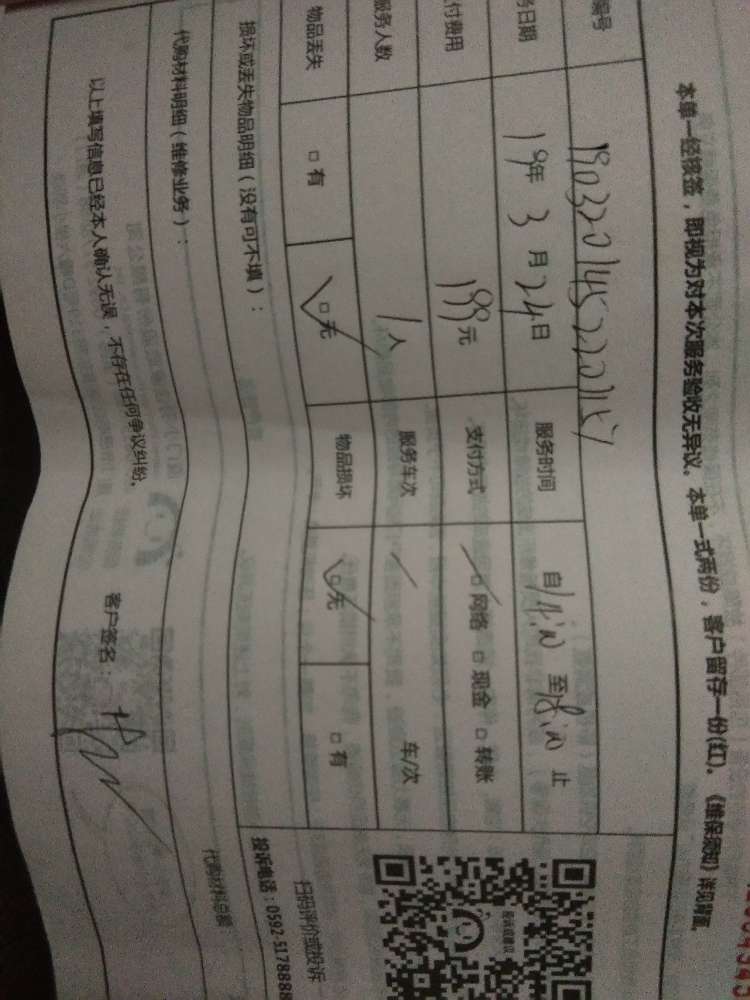 本单一经核签，即视为对本次服务验收无异议。本单一式两份，客户留存一份(红)。《维保须知》详见背面。
编号
务日期 19年 3月 24日 服务时间 自 14:00 至 18:00 止
付费用 199元 支付方式 □ 网络 □ 现金 □ 转账
服务人数 1人 服务车次 / 车/次
物品丢失 □ 有 □ 无 物品损坏 □ 无 □ 有
损坏或丢失物品明细（没有可不填）：
代购材料明细（维修业务）： 代购材料总额
以上填写信息已经本人确认无误，不存在任何争议纠纷。 客户签名：
投诉或建议
扫码评价或投诉
投诉电话：0592-5178888